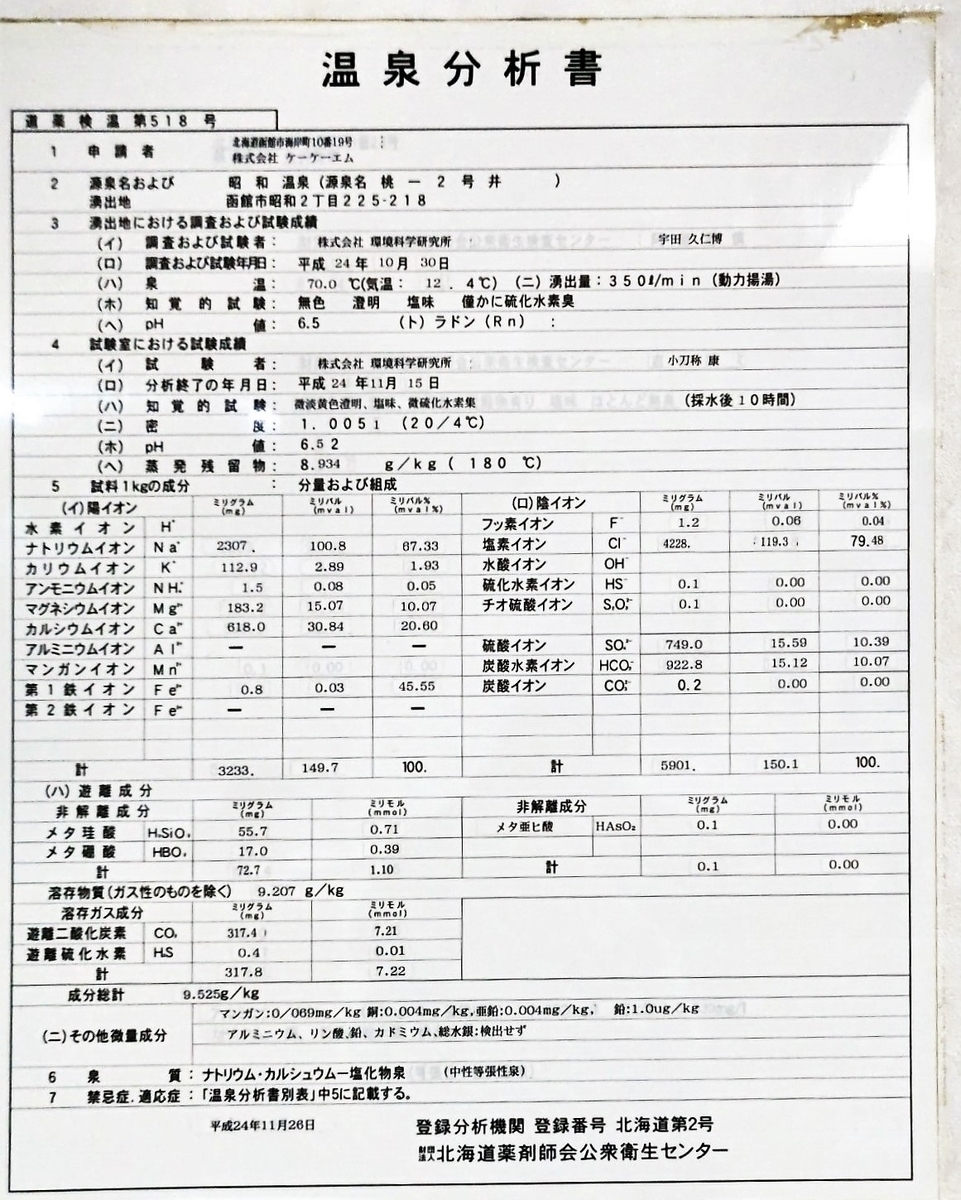 温泉分析書
道薬検温第518号
1 申請者 北海道函館市海岸町10番19号
株式会社 ケーケーエム
2 源泉名および 昭和 温泉(源泉名 桃 ー 2 号井 )
湧出地 函館市昭和2丁目225-218
3 湧出地における調査および試験成績
(イ) 調査および試験者: 株式会社 環境科学研究所 宇田 久仁博
(ロ) 調査および試験年月日: 平成 24年 10月 30日
(ハ) 泉温: 70.0 ℃(気温: 12.4℃) (ニ) 湧出量:350ℓ/min (動力揚湯)
(ホ) 知覚的試験: 無色 澄明 塩味 僅かに硫化水素臭
(ヘ) pH 値: 6.5 (ト) ラドン(Rn) :
4 試験室における試験成績
(イ) 試験者: 株式会社 環境科学研究所 小刀称 康
(ロ) 分析終了の年月日: 平成 24 年11月 15 日
(ハ) 知覚的試験: 微淡黄色澄明、塩味、微硫化水素集 (採水後10時間)
(ニ) 密度: 1.0051 (20/4℃)
(ホ) pH 値: 6.52
(ヘ) 蒸発残留物: 8.934 g/kg( 180 ℃)
5 試料1kgの成分 : 分量および組成
(イ)陽イオン ミリグラム(mg) ミリバル(mval) ミリバル%(mval%) (ロ)陰イオン ミリグラム(mg) ミリバル(mval) ミリバル%(mval%)
水素イオン H⁺ フッ素イオン F⁻ 1.2 0.06 0.04
ナトリウムイオン Na⁺ 2307. 100.8 67.33 塩素イオン Cl⁻ 4228. 119.3 79.48
カリウムイオン K⁺ 112.9 2.89 1.93 水酸イオン OH⁻
アンモニウムイオン NH₄⁺ 1.5 0.08 0.05 硫化水素イオン HS⁻ 0.1 0.00 0.00
マグネシウムイオン Mg²⁺ 183.2 15.07 10.07 チオ硫酸イオン S₂O₃²⁻ 0.1 0.00 0.00
カルシウムイオン Ca²⁺ 618.0 30.84 20.60
アルミニウムイオン Al³⁺ ー ー ー 硫酸イオン SO₄²⁻ 749.0 15.59 10.39
マンガンイオン Mn²⁺ 炭酸水素イオン HCO₃⁻ 922.8 15.12 10.07
第1鉄イオン Fe²⁺ 0.8 0.03 45.55 炭酸イオン CO₃²⁻ 0.2 0.00 0.00
第2鉄イオン Fe³⁺ ー ー ー
計 3233. 149.7 100. 計 5901. 150.1 100.
(ハ) 遊離成分
非解離成分 ミリグラム(mg) ミリモル(mmol) 非解離成分 ミリグラム(mg) ミリモル(mmol)
メタ珪酸 H₂SiO₃ 55.7 0.71 メタ亜ヒ酸 HAsO₂ 0.1 0.00
メタ硼酸 HBO₂ 17.0 0.39
計 72.7 1.10 計 0.1 0.00
溶存物質(ガス性のものを除く) 9.207 g/kg
溶存ガス成分 ミリグラム(mg) ミリモル(mmol)
遊離二酸化炭素 CO₂ 317.4 7.21
遊離硫化水素 H₂S 0.4 0.01
計 317.8 7.22
成分総計 9.525g/kg
(ニ)その他微量成分 マンガン:0/069mg/kg 銅:0.004mg/kg,亜鉛:0.004mg/kg, 鉛:1.0ug/kg
アルミニウム、リン酸,鉛、カドミウム,総水銀:検出せず
6 泉質: ナトリウム・カルシュウムー塩化物泉 (中性等張性泉)
7 禁忌症.適応症:「温泉分析書別表」中5に記載する。
平成24年11月26日 登録分析機関 登録番号 北海道第2号
財団法人北海道薬剤師会公衆衛生センター